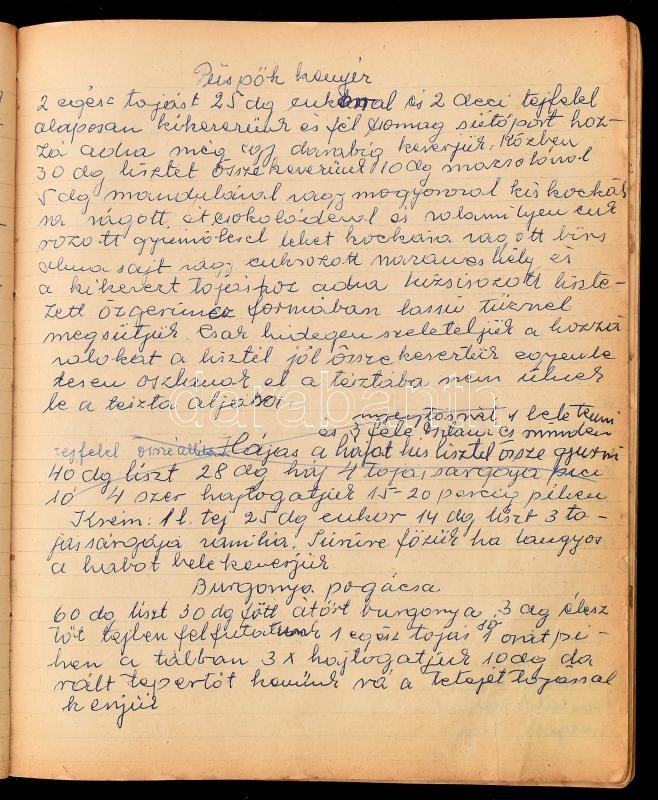 Püspök kenyér
2 egész tojást 25 dg cukorral és 2 deci tejfellel
alaposan kikeverünk és fél csomag sütőport hoz-
zá adva még egy darabig keverjük. Közben
30 dg lisztet összekeverünk 10 dg mazsolával
5 dg mandulával vagy mogyoróval kis kockák
ra vágott étcsokoládéval és valamilyen cuk
rozott gyümölcsel lehet kockára vágott birs
alma sajt vagy cukrozott narancshély és
a kikevert tojáshoz adva kizsirozott liszte-
zett őzgerinc formában lassu tűznél
megsütjük. Csak hidegen szeleteljük a hozzá
valókat a liszttel jól összekevertük egyenle
tesen oszlanak el a tésztába nem ülnek
le a tészta aljára.
1 bele tenni
és 3 felé osztani és minden
tejfel Hájas a hájat kis liszttel össze gyurni
40 dg liszt 28 dg háj 4 tojássárgája pici
só 4 szer hajtogatjuk 15-20 percig pihen
Krém: 1 l. tej 25 dg cukor 14 dg liszt 3 to-
jássárgája vanilia. Sűrűre főzük ha langyos
a habot belekeverjük
Burgonya pogácsa
60 dg liszt 30 dg főtt áttört burgonya, 3 dg élesz
tőt tejben felfuttatunk 1 egész tojás só 1 órát pi-
hen a tálban 3 x hajtogatjuk 10 dg da
rált tepertőt kenünk rá a tetejét tojással
kenjük
darabanth